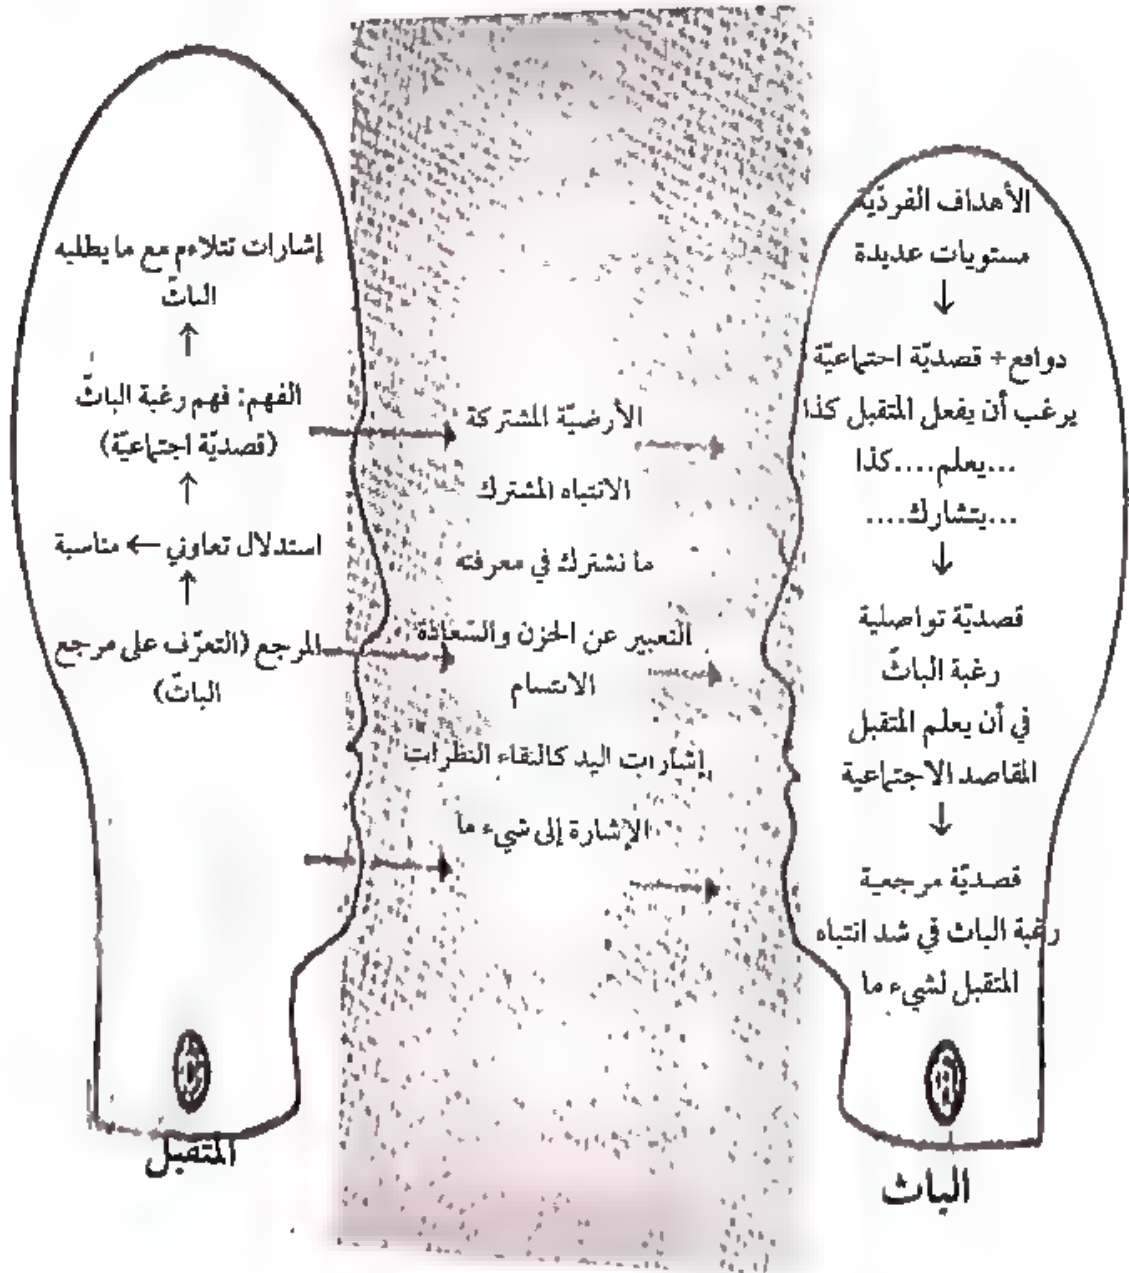 الأهداف الفرديّة
مستويات عديدة
↓
دوافع+ قصديّة اجتماعيّة
يرغب أن يفعل المتقبل كذا
...يعلم....كذا
...يتشارك....
↓
قصديّة تواصلية
رغبة الباثّ
في أن يعلم المتقبل
المقاصد الاجتماعية
↓
قصديّة مرجعية
رغبة الباث في شد انتباه
المتقبل لشيء ما
الباث
الأرضيّة المشتركة
الانتباه المشترك
ما نشترك في معرفته
التعبير عن الحزن والسّعادة
الابتسام
إشارات اليد كالتقاء النظرات
الإشارة إلى شيء ما
إشارات تتلاءم مع ما يطلبه
الباثّ
↑
الفهم: فهم رغبة الباثّ
(قصديّة اجتماعيّة)
↑
استدلال تعاوني ← مناسبة
↑
المرجع (التعرّف على مرجع
الباثّ)
المتقبل